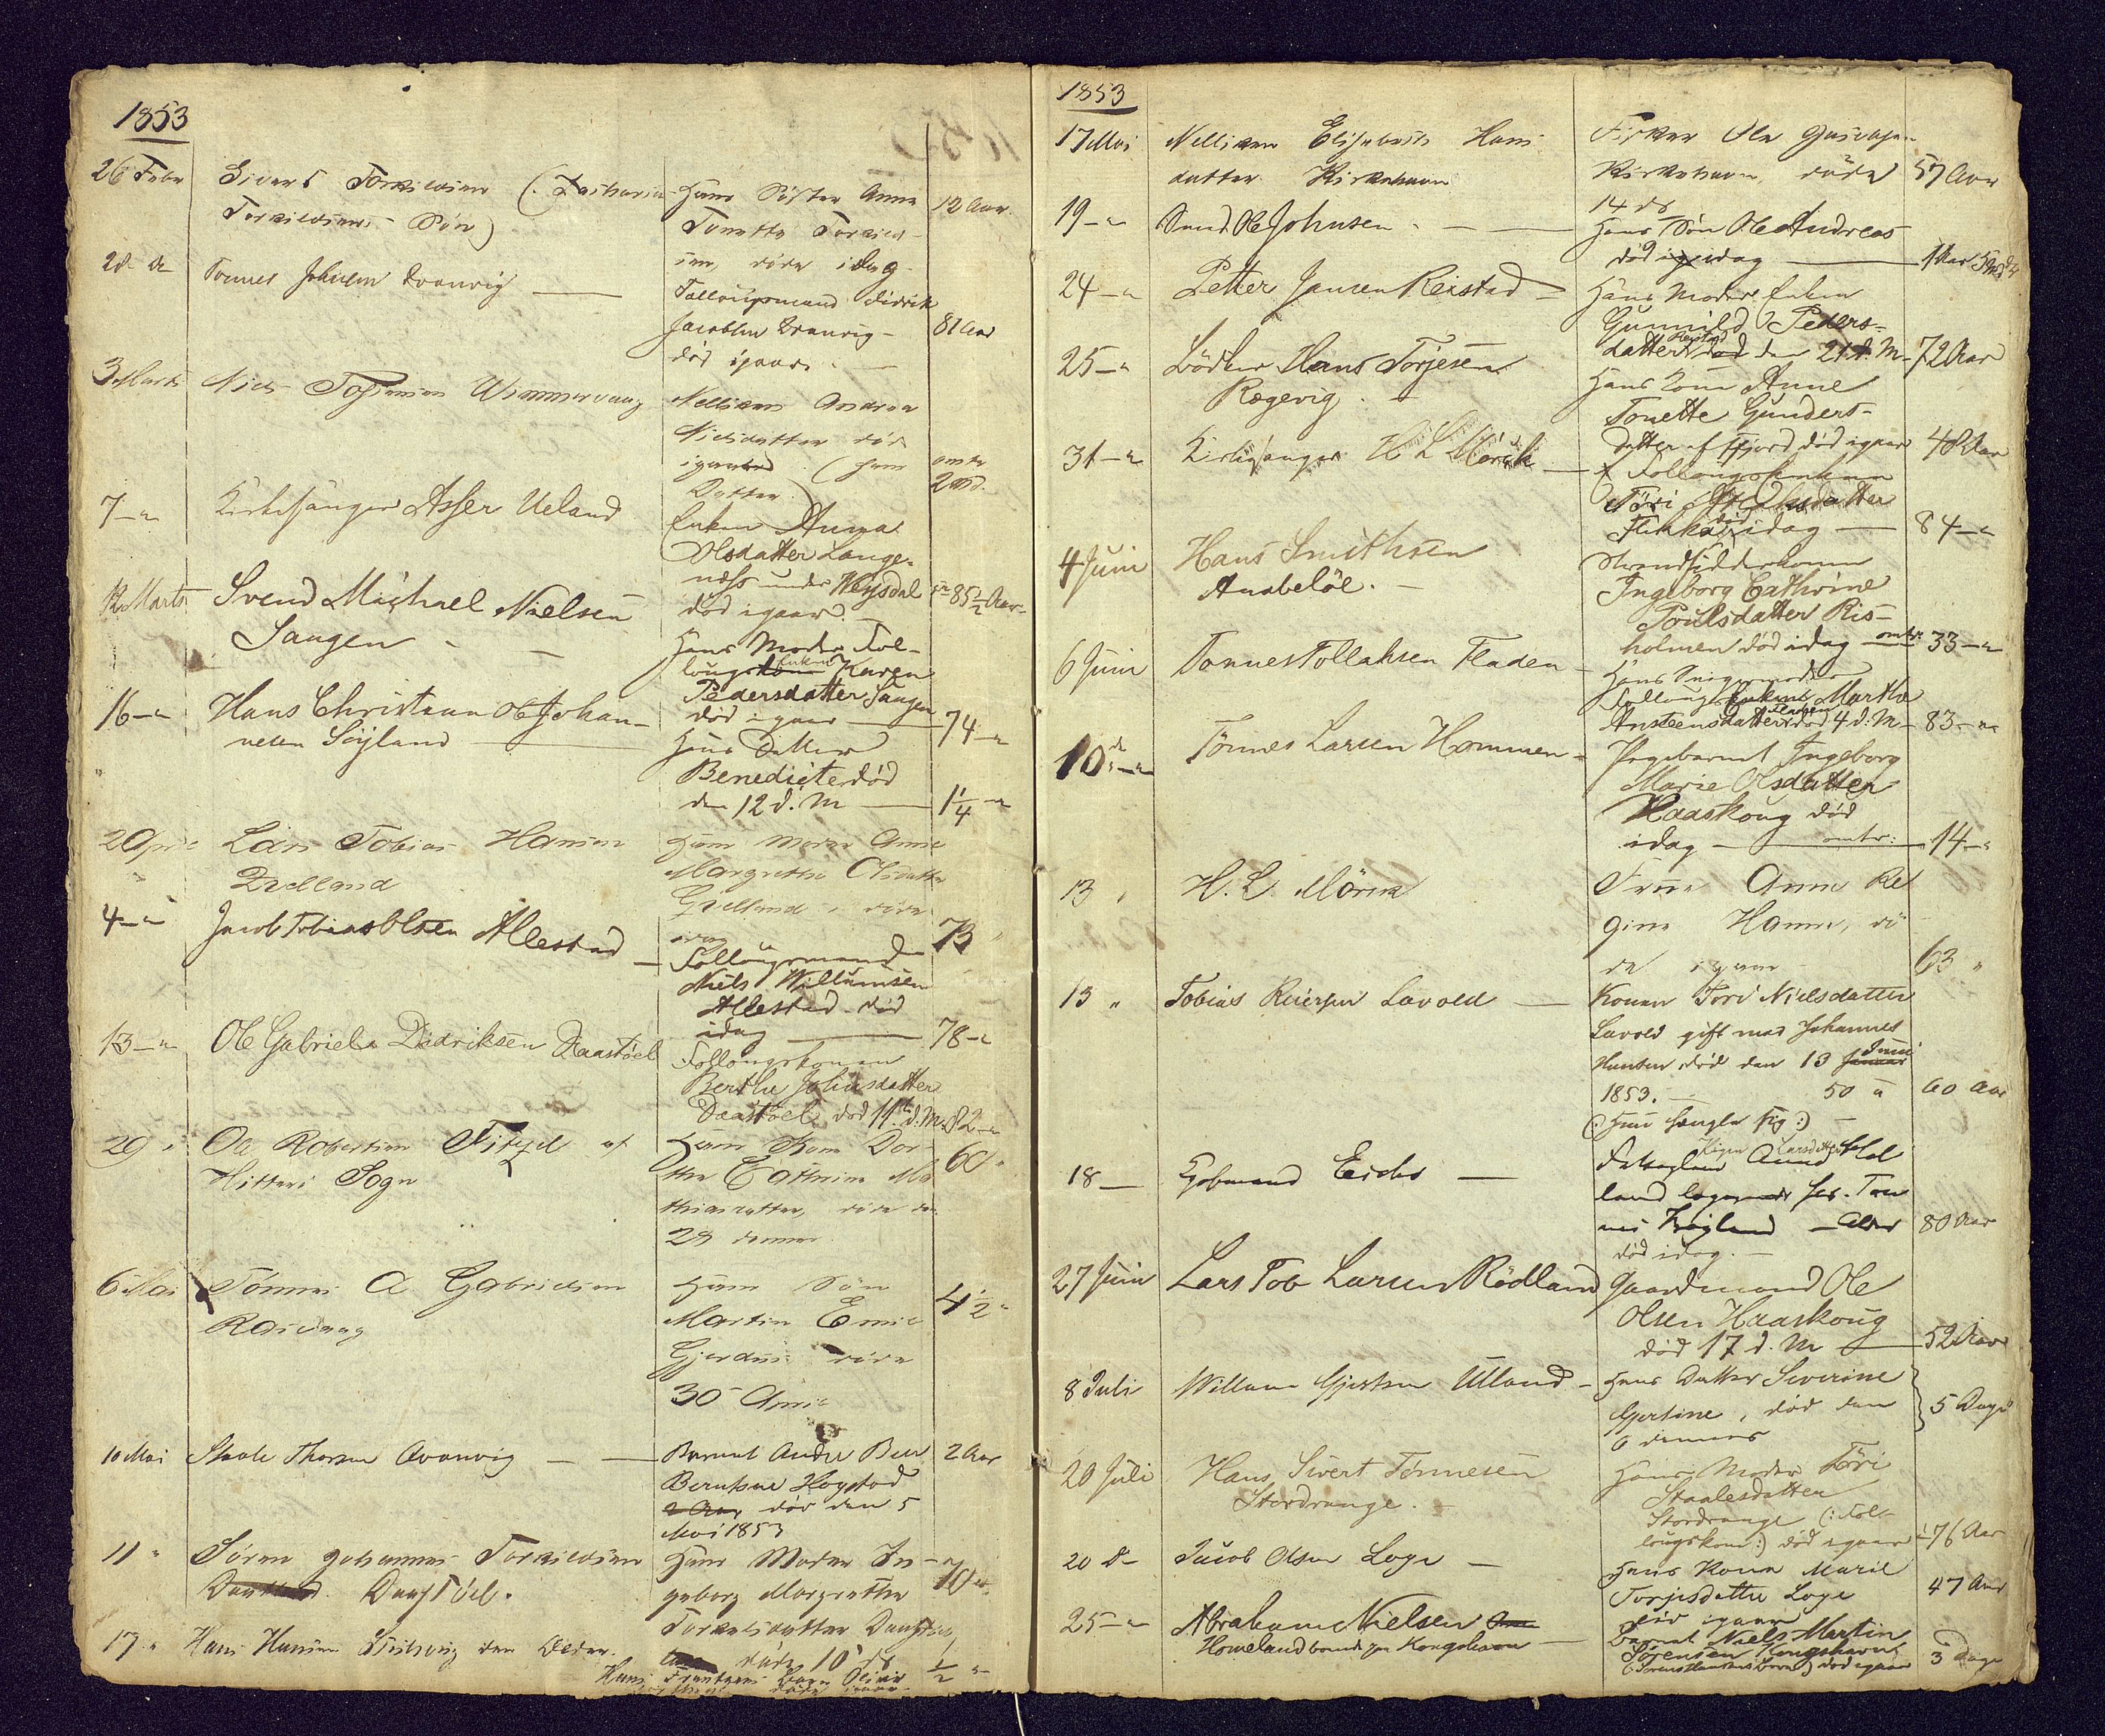 1853
26 Febr
Sivert Torkildsen (Zacharias
Torkildsens Søn)
Hans Søster Anna
Tonette Torkild-
sen, døde idag
12 Aar.
28 de
Tonnes Johnsen Dranvig
Follougsmand Didrik
Jacobsen Dranvig
død igaar.
81 Aar
3 Marts
Niels
Nellisem Andrea
Nielsdatter død
igaar (hans
Datter)
omtr
2 Md.
7 —"
Kirkesanger Asser Ueland
Enken Anna
Olsdatter Lange-
næss under
død igaar
85½ Aar
12 Marts
Svend Michael Nielsen
Saugen
Hans Moder Fol-
lougs Enken Karen
Pedersdatter Saugen
død igaar
74 —"
16 —"
Hans Christian Ole Johan-
nesen Søyland
Hans Datter
Benedicte død
den 12 d. M
1¼ —"
2 April
Lars Tobias Hansen
Hans Moder Anne
Margrethe Olsdatter
døde
idag
73 "
4 —"
Jacob Tobias Olsen Allestad
Follougsmanden
Niels Willumsen
Allestad død
idag
78 —"
13 —"
Ole Gabriel Didriksen Daastøel
Follougskonen
Berthe Johnsdatter
Daastøel død 11te d. M.
82 —"
29 "
Ole Robertsen af
Hitterø Sogn
Hans Kone Dor-
the Cathrine Ma-
thiasdatter, døde den
28 dennes
60 "
6 Mai
Tønnes A Gabrielsen
Rasvaag
Hans Søn
Martin Emil
døde
30 April
4½ "
10 Mai
Staale Thorsen Avanvig
Barnet Andre
Berntsen Hogstad
2 Aar død den 5
Mai 1853
2 Aar
11 "
Søren Johannes Torkildsen
Daastøel.
Hans Moder In-
geborg Margrethe
Torkelsdatter
døde 10 ds
70 "
17 "
Hans Hansen den Ældre.
Hans
½ "
1853
17 Mai
Nellisem Elisabeth Hans-
datter Kirkehavn
Fisker Ole
Kirkehavn døde
14 ds
57 Aar
19 —"
Ole Johnsen
Hans Søn Ole Andreas
død idag
1 Aar
24 —"
Petter Jansen Reistad
Hans Moder Enken
Gunnild Peders-
datter Reistad død den 21 d. M
72 Aar
25 —"
Bödker Hans Torjesen
Rægevig.
Hans Kone Anne
Tonette Gunders-
datter af Fjord død igaar
48 Aar
31 —"
Kirkesanger H L Mørck
Follougsenken
Töri Olsdatter
død idag
84 —"
4 Juni
Hans Smithsen
Anabeløe.
Strandsidderkonen
Ingeborg Cathrine
Poulsdatter Ris-
holmen død idag omtr:
33 —"
6 Juni
Tønnes Tollaksen Fladen
Hans Svigermoder
Follougs Enken Marthe
Ansteensdatter Fladen død 4 d. M
83 —"
10 de —"
Tönnes Larsen Hommen
Pigebarnet Ingeborg
Marie Olsdatter
Haaskoug død
idag omtr:
14 —"
13 "
H. L. Mörck
Frue Anne Re-
gine Hanne, dö-
de igaar
63 "
13 "
Tobias Reiersen Lavold
Konen Tori Nielsdatter
Lavold gift med Johannes
Hansen død den 13 Januar Juni
1853. 50 a
60 Aar
(: Hun hængte sig :)
18 —
Gjetmund Eicke
Fattiglem Pigen Anna Larsdatter Hel-
land
Røgland — Alder
død idag.
80 Aar
27 Juni
Lars Tob Larsen Rødland
Gaardmand Ole
Olsen Haaskoug
død 17 d. M
52 Aar
8 Juli
Willum Gjertsen Ulland
Hans Datter Siverine
Gjertine, død den
6 dennes
5 Dage
20 Juli
Hans Sivert Tönnesen
Stordrange.
Hans Moder Töri
Staalesdatter
Stordrange (: Fol-
lougskone :) død igaar
76 Aar
20 de
Jacob Olsen Loge
Hans Kone Marie
Torjusdatter Loge
død igaar
47 Aar
25 —"
Abraham Nielsen
Homeland boende paa Kongshavn
Barnet Niels Martin
Sørensen Kongshavn
død igaar
3 Dage